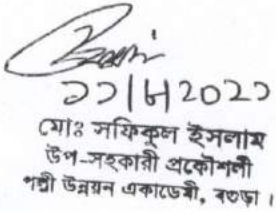 ১১|৮|২০২১
মোঃ সফিকুল ইসলাম
উপ-সহকারী প্রকৌশলী
পল্লী উন্নয়ন একাডেমী, বগুড়া।